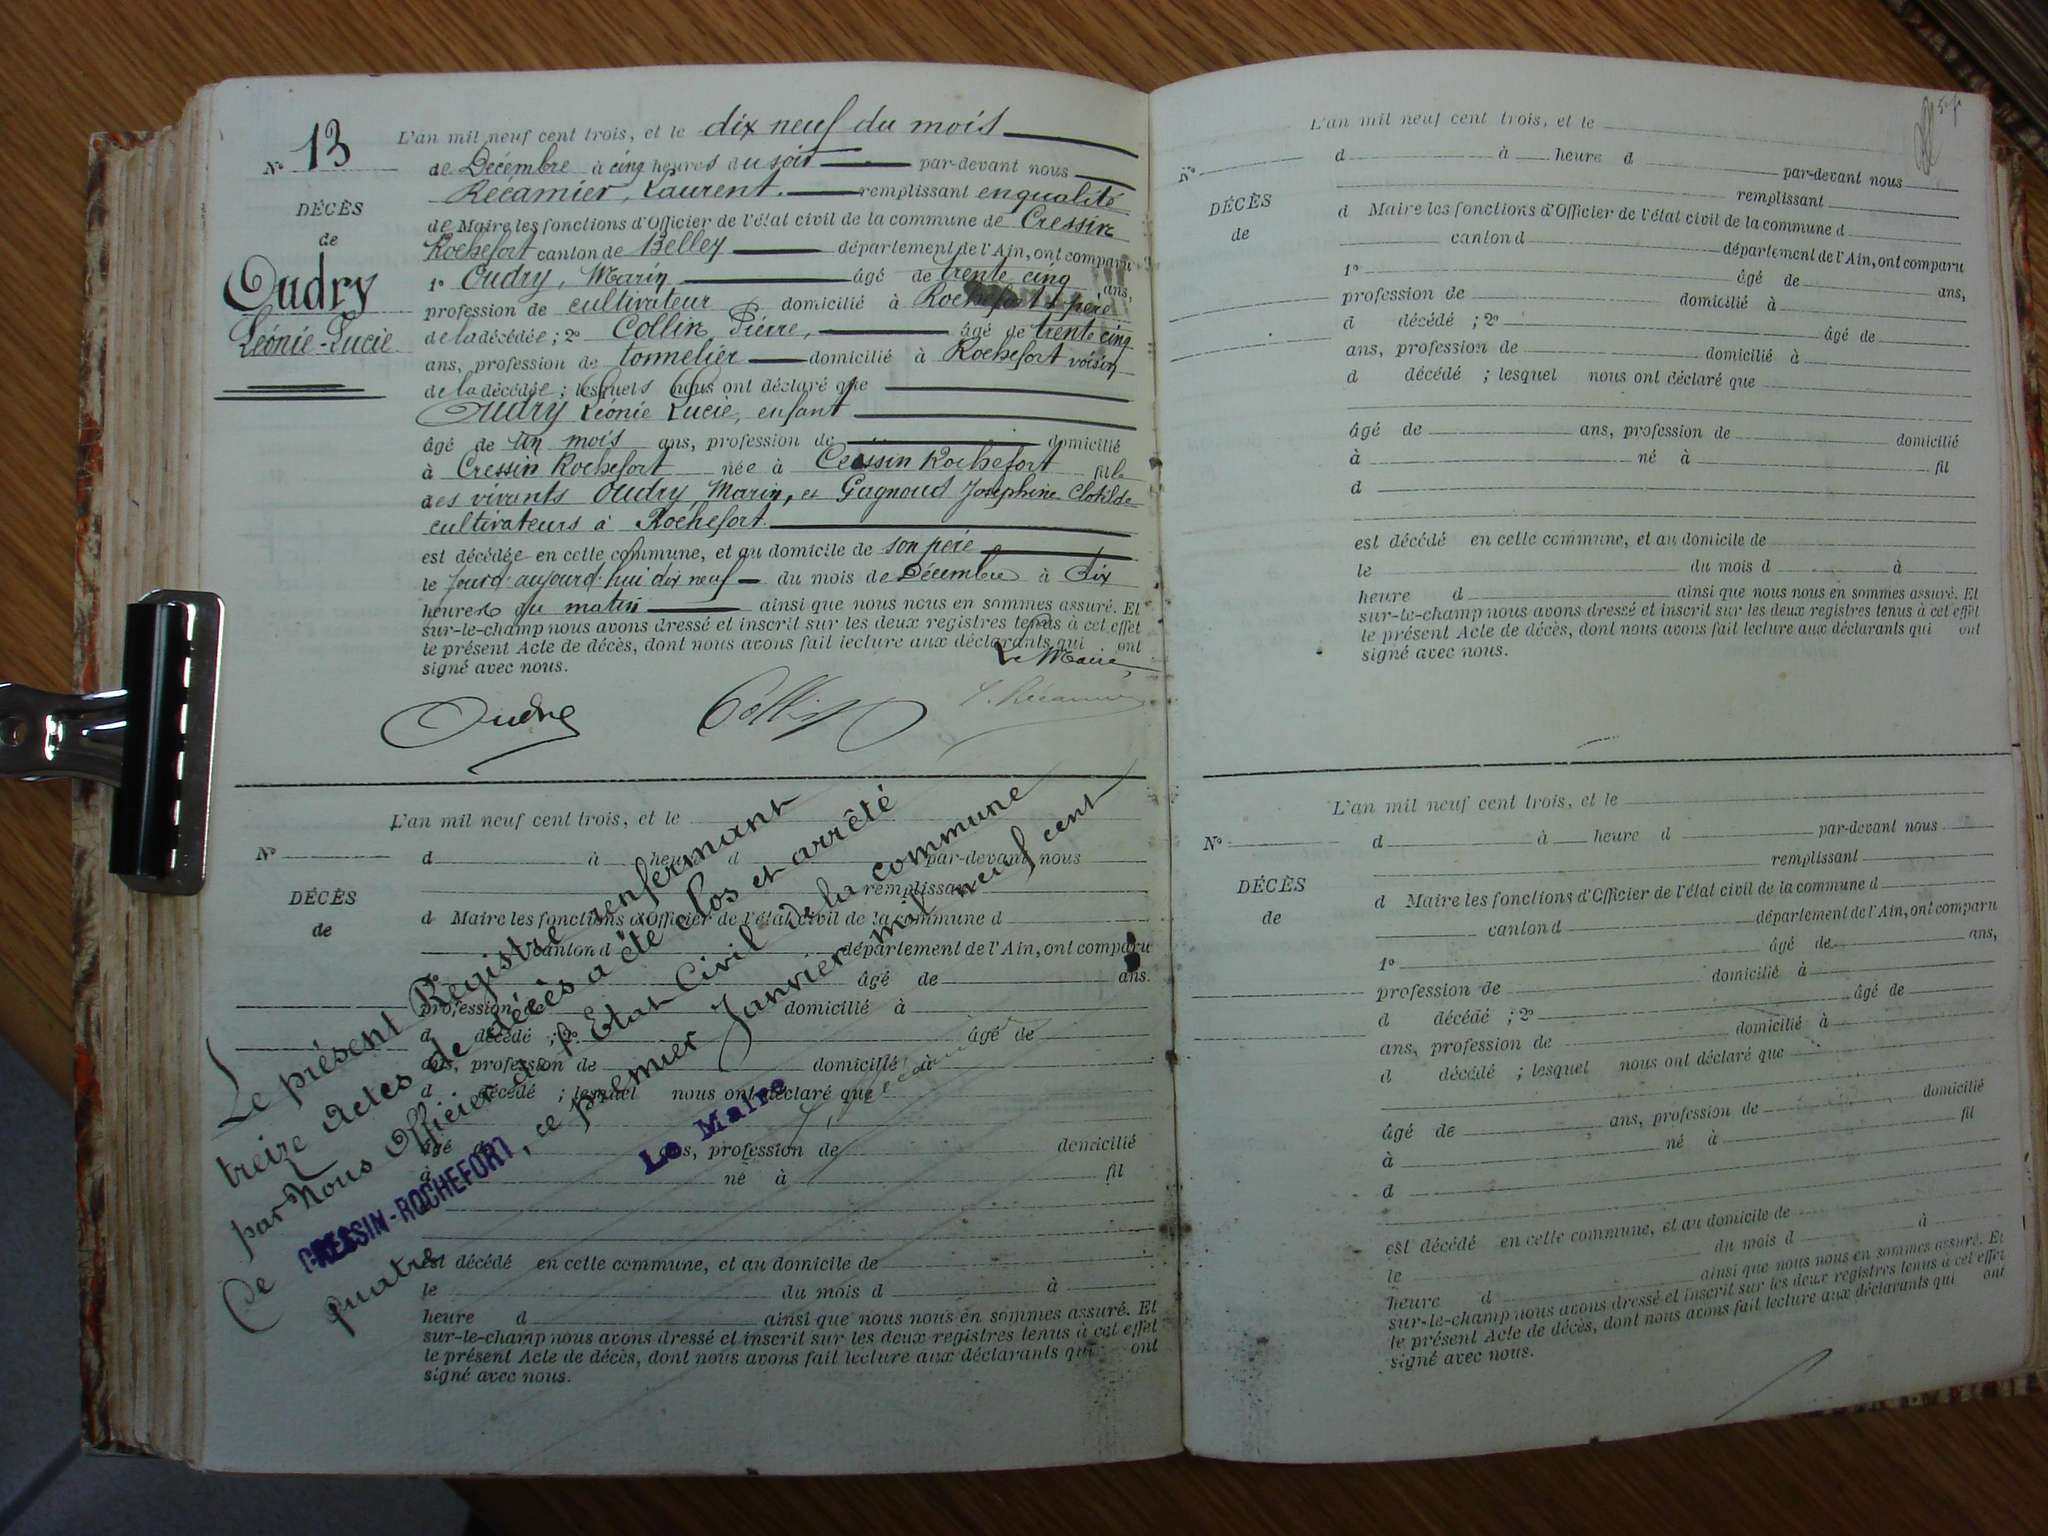 N° 13
DÉCÈS
de
Oudry
Léonie-Lucie
L'an mil neuf cent trois, et le dix neuf du mois
de Décembre à cinq heures du soir par-devant nous
Récamier, Laurent. remplissant en qualité
de Maire les fonctions d'Officier de l'état civil de la commune de Cressin
Rochefort canton de Belley département de l'Ain, ont comparu
1° Oudry, Marin, âgé de trente cinq ans,
profession de cultivateur domicilié à Rochefort père
de la décédée ; 2° Collin, Pierre, âgé de trente cinq
ans, profession de tonnelier domicilié à Rochefort voisin
de la décédée ; lesquels nous ont déclaré que
Oudry Léonie Lucie, enfant
âgé de un mois ans, profession de domicilié
à Cressin Rochefort née à Cressin Rochefort fille
des vivants Oudry, Marin, et Gagnoud Joséphine Clotilde
cultivateurs à Rochefort.
est décédée en cette commune, et au domicile de son père
le jourd'aujourd'hui dix neuf du mois de Décembre à dix
heures du matin ainsi que nous nous en sommes assuré. Et
sur-le-champ nous avons dressé et inscrit sur les deux registres tenus à cet effet
le présent Acte de décès, dont nous avons fait lecture aux déclarants qui ont
signé avec nous.
Le Maire,
Oudry Collin L. Récamier
N°
DÉCÈS
de
L'an mil neuf cent trois, et le
d à heure d par-devant nous
remplissant
d Maire les fonctions d'Officier de l'état civil de la commune d
canton d département de l'Ain, ont comparu
âgé de ans.
profession de domicilié à
d décédé ; 2° âgé de
ans, profession de domicilié à
d décédé ; lesquel nous ont déclaré que
âgé de ans, profession de domicilié
à né à fil
est décédé en cette commune, et au domicile de
le du mois d à
heure d ainsi que nous nous en sommes assuré. Et
sur-le-champ nous avons dressé et inscrit sur les deux registres tenus à cet effet
le présent Acte de décès, dont nous avons fait lecture aux déclarants qui ont
signé avec nous.
Le présent Registre renfermant
treize Actes de décès a été clos et arrêté
par Nous Officier de l'Etat Civil de la commune
De CRESSIN-ROCHEFORT, ce premier Janvier mil neuf cent
quatre
Le Maire
L'an mil neuf cent trois, et le
N°
DÉCÈS
de
d à heure d par-devant nous
remplissant
d Maire les fonctions d'Officier de l'état civil de la commune d
canton d département de l'Ain, ont comparu
1° âgé de ans,
profession de domicilié à
d décédé ; 2° âgé de
ans, profession de domicilié à
d décédé ; lesquel nous ont déclaré que
âgé de ans, profession de domicilié
à né à fil
d
est décédé en cette commune, et au domicile de
le du mois d à
heure d ainsi que nous nous en sommes assuré. Et
sur-le-champ nous avons dressé et inscrit sur les deux registres tenus à cet effet
le présent Acte de décès, dont nous avons fait lecture aux déclarants qui ont
signé avec nous.
N°
DÉCÈS
de
L'an mil neuf cent trois, et le
d à heure d par-devant nous
remplissant
d Maire les fonctions d'Officier de l'état civil de la commune d
canton d département de l'Ain, ont comparu
1° âgé de ans,
profession de domicilié à
d décédé ; 2° âgé de
ans, profession de domicilié à
d décédé ; lesquel nous ont déclaré que
âgé de ans, profession de domicilié
à né à fil
d
est décédé en cette commune, et au domicile de
le du mois d à
heure d ainsi que nous nous en sommes assuré. Et
sur-le-champ nous avons dressé et inscrit sur les deux registres tenus à cet effet
le présent Acte de décès, dont nous avons fait lecture aux déclarants qui ont
signé avec nous.